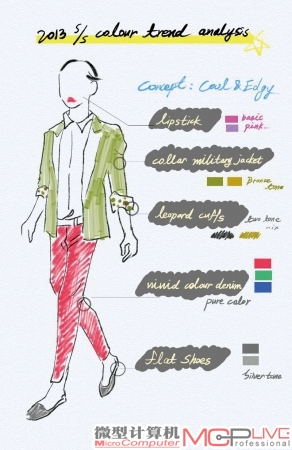 2013 S/S colour trend analysis
Concept: Cool & Edgy
lipstick
basic
pink
collar military jacket
bronze
tone
leopard cuffs
two tone
mix
vivid colour denim
pure color
flat shoes
silver tone
微型计算机
MCPLIVE
Micro Computer
Professional